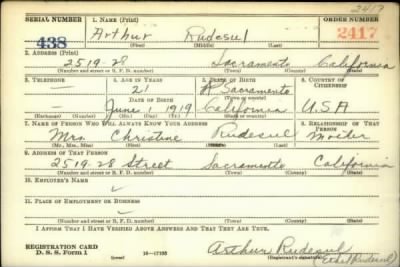 2417
SERIAL NUMBER 1. NAME (Print) ORDER NUMBER
438 Arthur Rudesul 2417
(First) (Middle) (Last)
2. ADDRESS (Print)
2519-28 Sacramento California
(Number and street or R. F. D. number) (Town) (County) (State)
3. TELEPHONE 4. AGE IN YEARS 5. PLACE OF BIRTH 6. COUNTRY OF CITIZENSHIP
— 21 Sacramento
DATE OF BIRTH (Town or county)
— June 1 1919 California U.S.A
(Exchange) (Number) (Mo.) (Day) (Yr.) (State or country)
7. NAME OF PERSON WHO WILL ALWAYS KNOW YOUR ADDRESS 8. RELATIONSHIP OF THAT PERSON
Mrs. Christine Rudesul Mother
(Mr., Mrs., Miss) (First) (Middle) (Last)
9. ADDRESS OF THAT PERSON
2519-28 Street Sacramento California
(Number and street or R. F. D. number) (Town) (County) (State)
10. EMPLOYER'S NAME
11. PLACE OF EMPLOYMENT OR BUSINESS
(Number and street or R. F. D. number) (Town) (County) (State)
I AFFIRM THAT I HAVE VERIFIED ABOVE ANSWERS AND THAT THEY ARE TRUE.
REGISTRATION CARD
D. S. S. Form 1 16—17105 Arthur Rudesul
(Registrant's signature) (Ethel Rudesul)